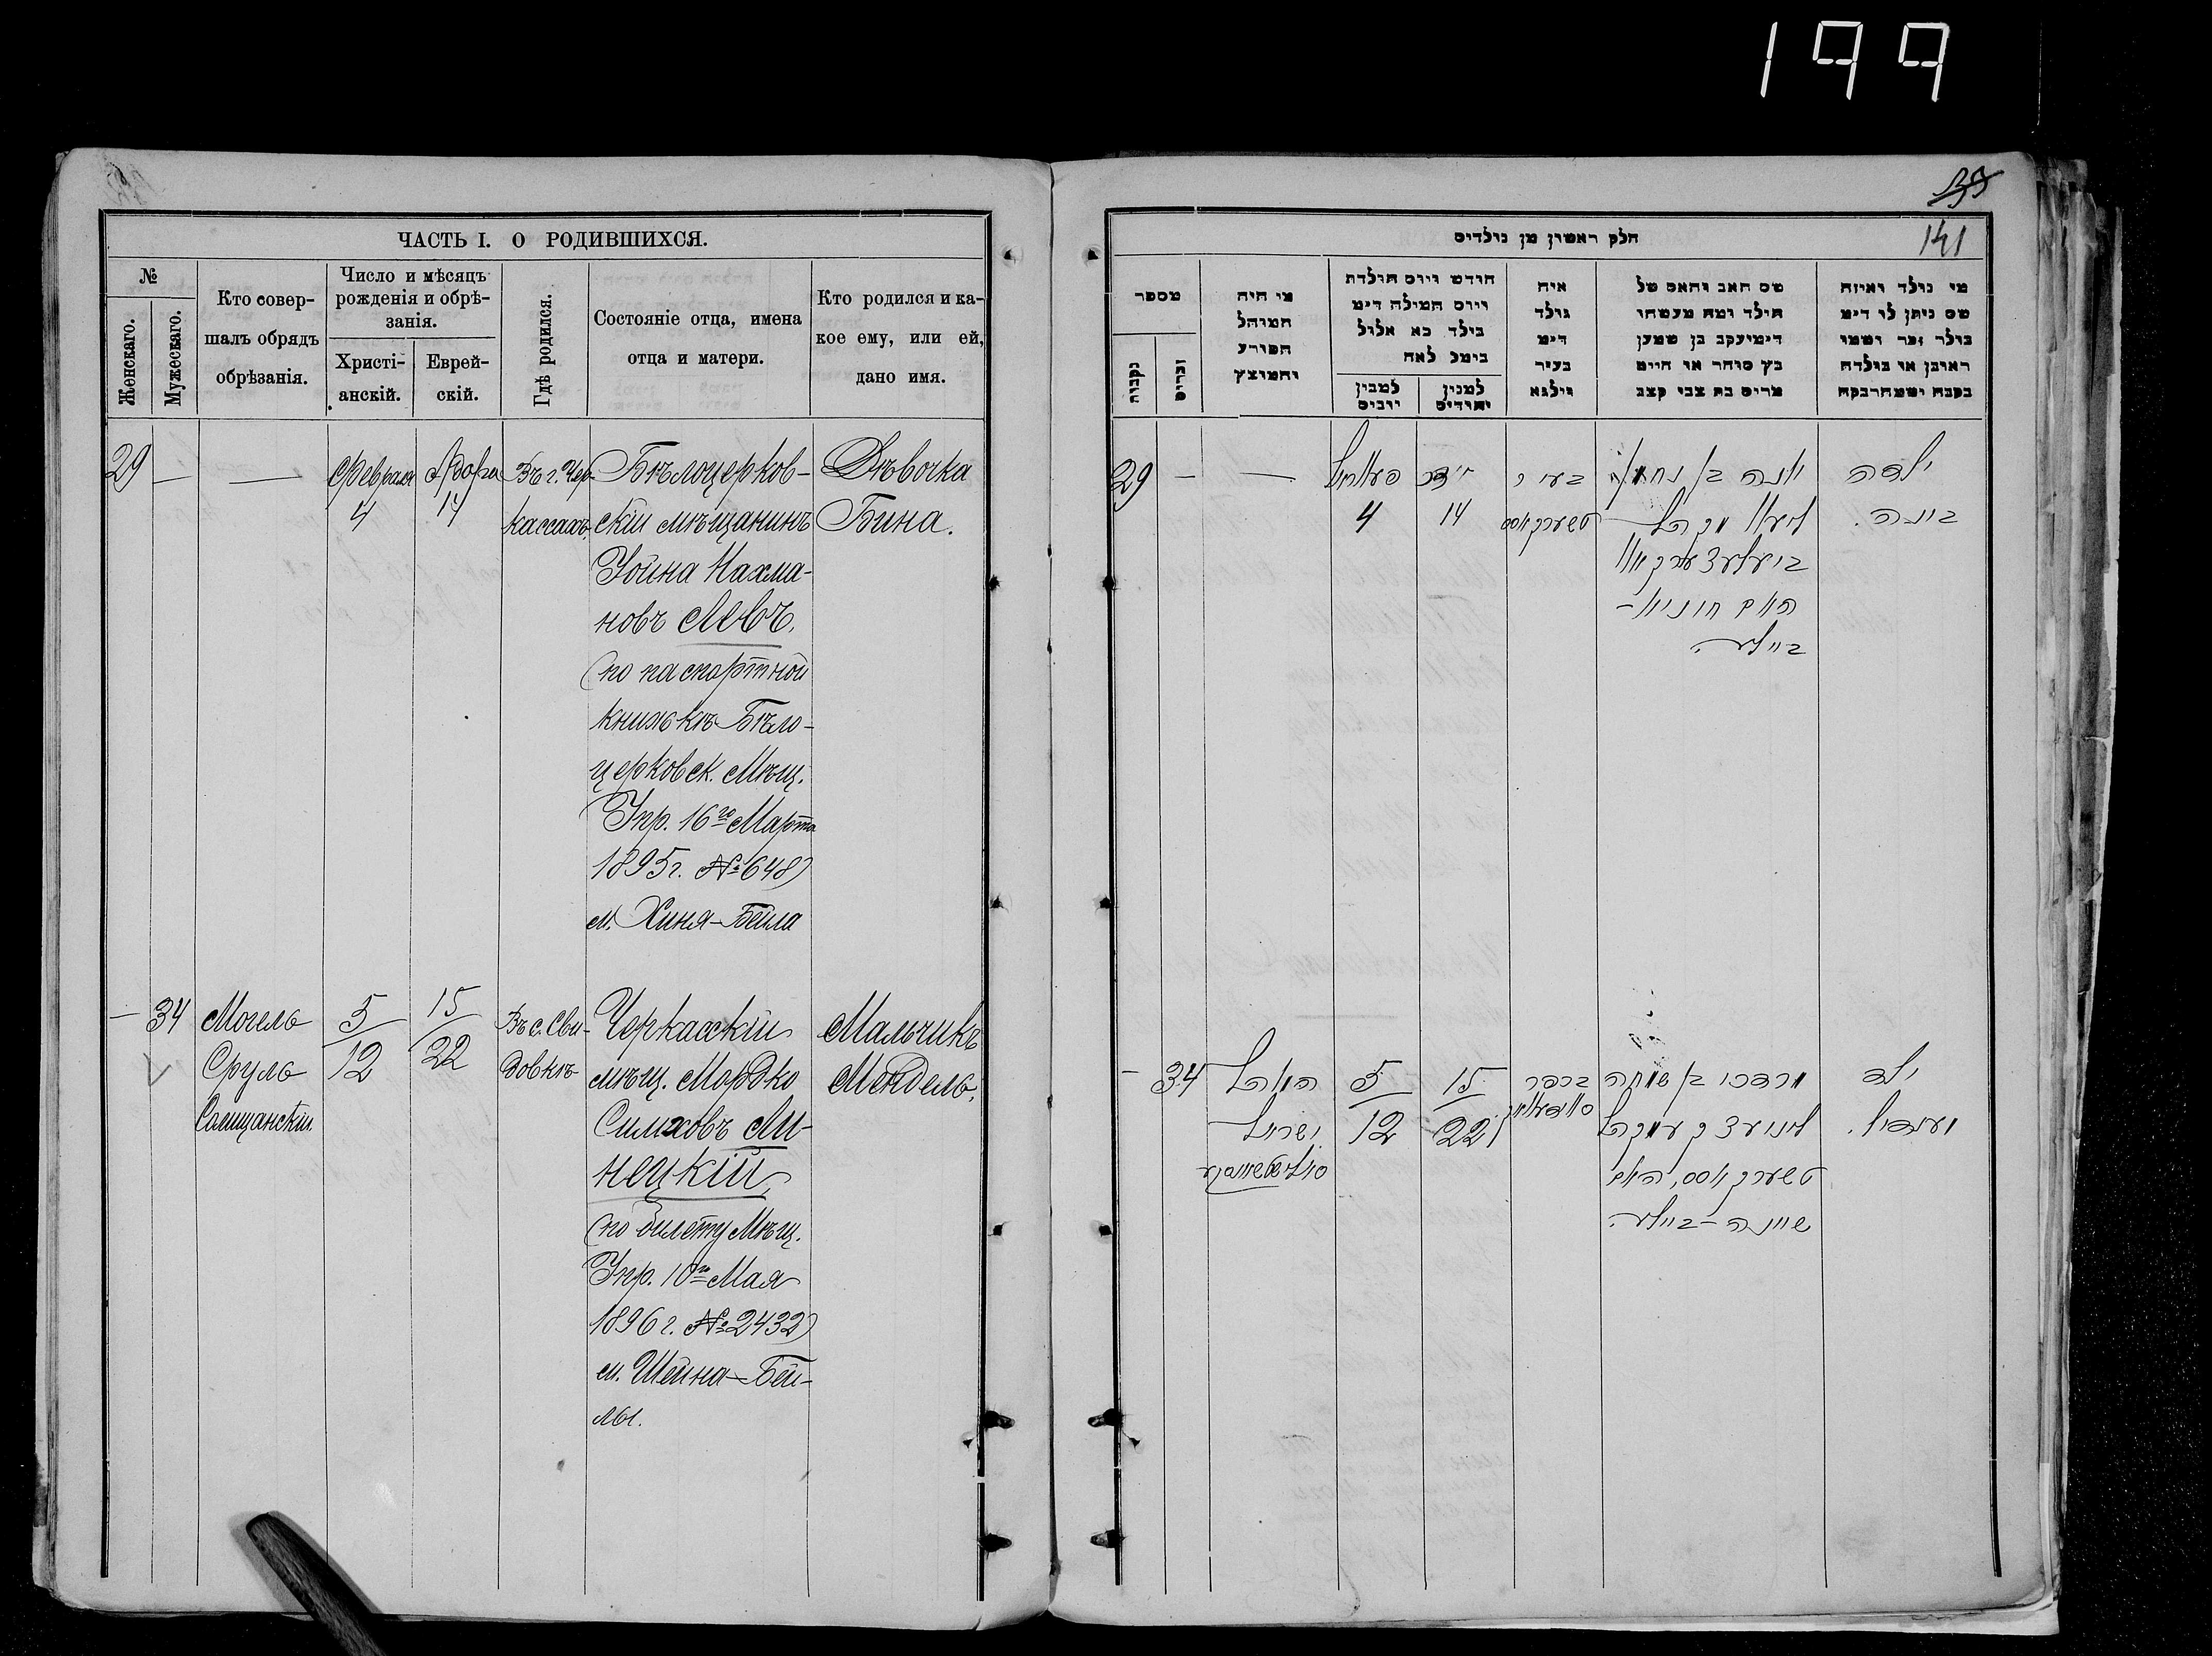 199
ЧАСТЬ I. О РОДИВШИХСЯ.
№
Женскаго.
Мужескаго.
Кто совер-
шалъ обрядъ
обрѣзанія.
Число и мѣсяцъ
рожденія и обрѣ-
занія.
Христі-
анскій.
Еврей-
скій.
Гдѣ родился.
Состояніе отца, имена
отца и матери.
Кто родился и ка-
кое ему, или ей,
дано имя.
29
—
—
Февраля
4
Адора
14
Въ г. Чер-
кассахъ
Бѣлоцерков-
скій мѣщанинъ
Іойна Нахма-
новъ Левъ.
(по паспортной
книжкѣ Бѣло-
церковск. Мѣщ.
Упр. 16го Марта
1895 г. № 648)
м. Хиня-Бейла
Дѣвочка
Бина.
—
34
Могель
Сруль
5
12
15
22
Въ с. Сви-
довкѣ
Черкасскій
мѣщ. Мордко
Симховъ Ли-
нецкій,
(по билету Мѣщ.
Упр. 10го Мая
1896 г. № 2432)
м. Шейна-Бей-
лы.
Мальчикъ
Мендель.
39
141
חלק ראשון מן נולדים
מספר
נקבות
זכרים
מי היה
המוהל
הפורע
והמוצץ
חודש ויום תולדת
ויום המילה דימ
בילד כא אלול
בימל לאח
למנין
יהודים
איה
נולד
דימ
בעיר
ווילנא
שם האב והאם של
הילד ומה מעשהו
דימיעקב בן שמען
כץ סוחר או חיים
מרים בת צבי קצב
מי נולד ואיזה
שם ניתן לו דימ
ראובן או בולדה
29
—
—
4
14
בעיר
טשערקאסס
יונה בן נחמן
ביילע.
ילדה
בינה.
—
34
המוהל
ישראל
5
12
15
22
בכפר
מרדכי בן שמחה
טשערקאסס, האם
שיינה-ביילע.
ילד
מענדיל.